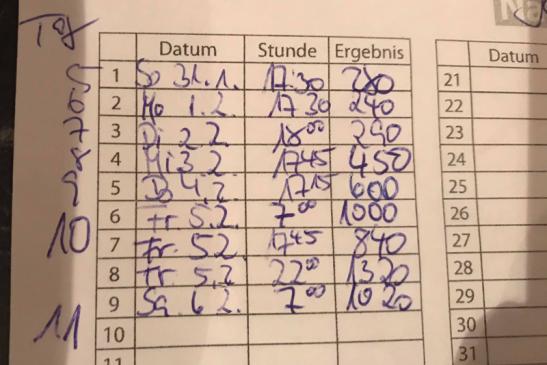 Na
Tag
Datum Stunde Ergebnis
1 So 31.1. 17:30 280
2 Mo 1.2. 17 30 240
3 Di 2.2 18 00 290
4 Mi 3.2 17 45 450
5 Do 4.2. 17 15 600
6 Fr 5.2. 7 00 1000
10
7 Fr. 5.2. 17 45 840
8 Fr. 5.2. 22 00 1320
9 Sa. 6.2. 7 00 1020
11
10
11
Datum
21
22
23
24
25
26
27
28
29
30
31